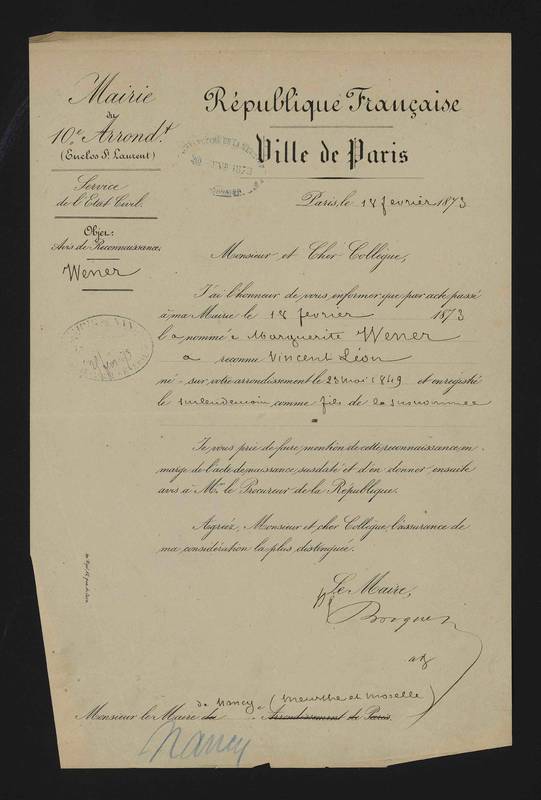 Mairie
du
10e Arrondt
(Enclos St Laurent)
Service
de l'Etat Civil.
Objet:
Avis de Reconnaissance:
Wener
République Française
Ville de Paris
1873
Paris, le 18 fevrier 1873
Monsieur et Cher Collègue,
J'ai l'honneur de vous informer que par acte passé
à ma Mairie le 18 fevrier 1873
la nommée Marguerite Wener
a reconnu Vincent Léon
né sur votre arrondissement le 23 mai 1849 et enregistré
le surlendemain, comme fils de la susnommée
Je vous prie de faire mention de cette reconnaissance, en
marge de l'acte de naissance, susdaté et d'en donner ensuite
avis à Mr le Procureur de la République.
Agréez, Monsieur et cher Collègue, l'assurance de
ma considération la plus distinguée.
Le Maire,
de Nancy (Meurthe et Moselle)
Monsieur le Maire du Arrondissement de Paris.
Nancy